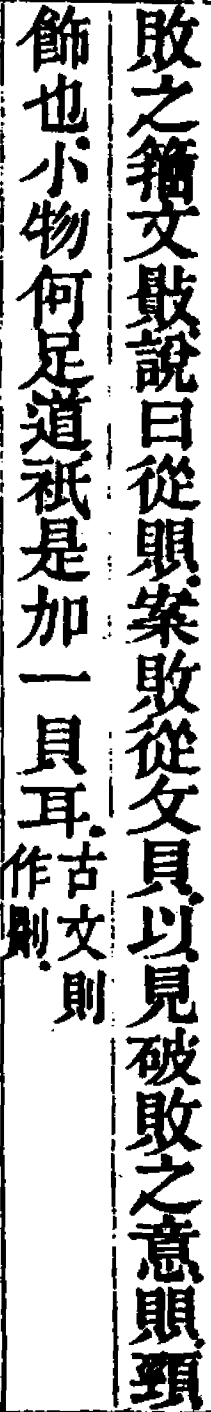 敗之籀文𣀕說曰從賏案敗從攵貝以見破敗之意賏頸
飾也小物何足道祇是加一貝耳
古文則
作𠟭